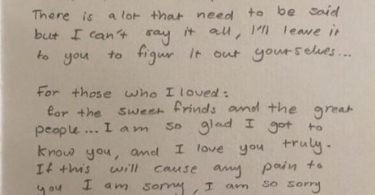 There is a lot that need to be said
but I can't say it all, I'll leave it
to you to figur it out yourselves...
For those who I loved:
for the sweet frinds and the great
people... I am so glad I got to
know you, and I love you truly.
If this will cause any pain to
you I am sorry, I am so sorry